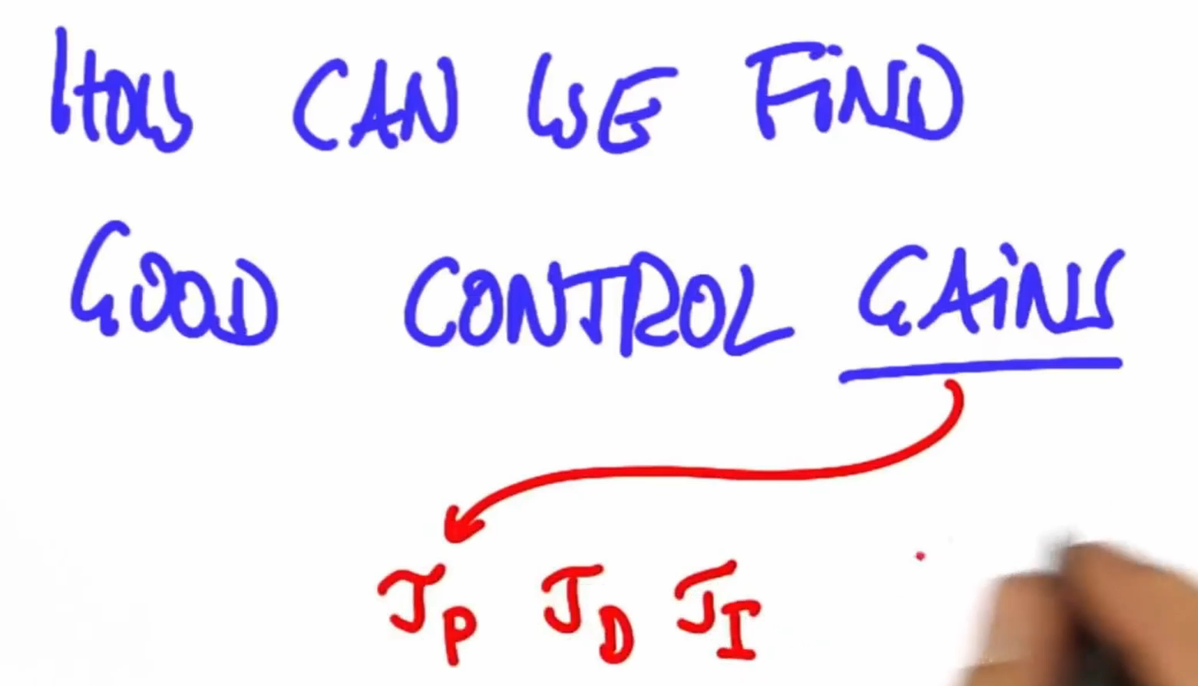 HOW CAN WE FIND
GOOD CONTROL GAiNS
τP τD τI